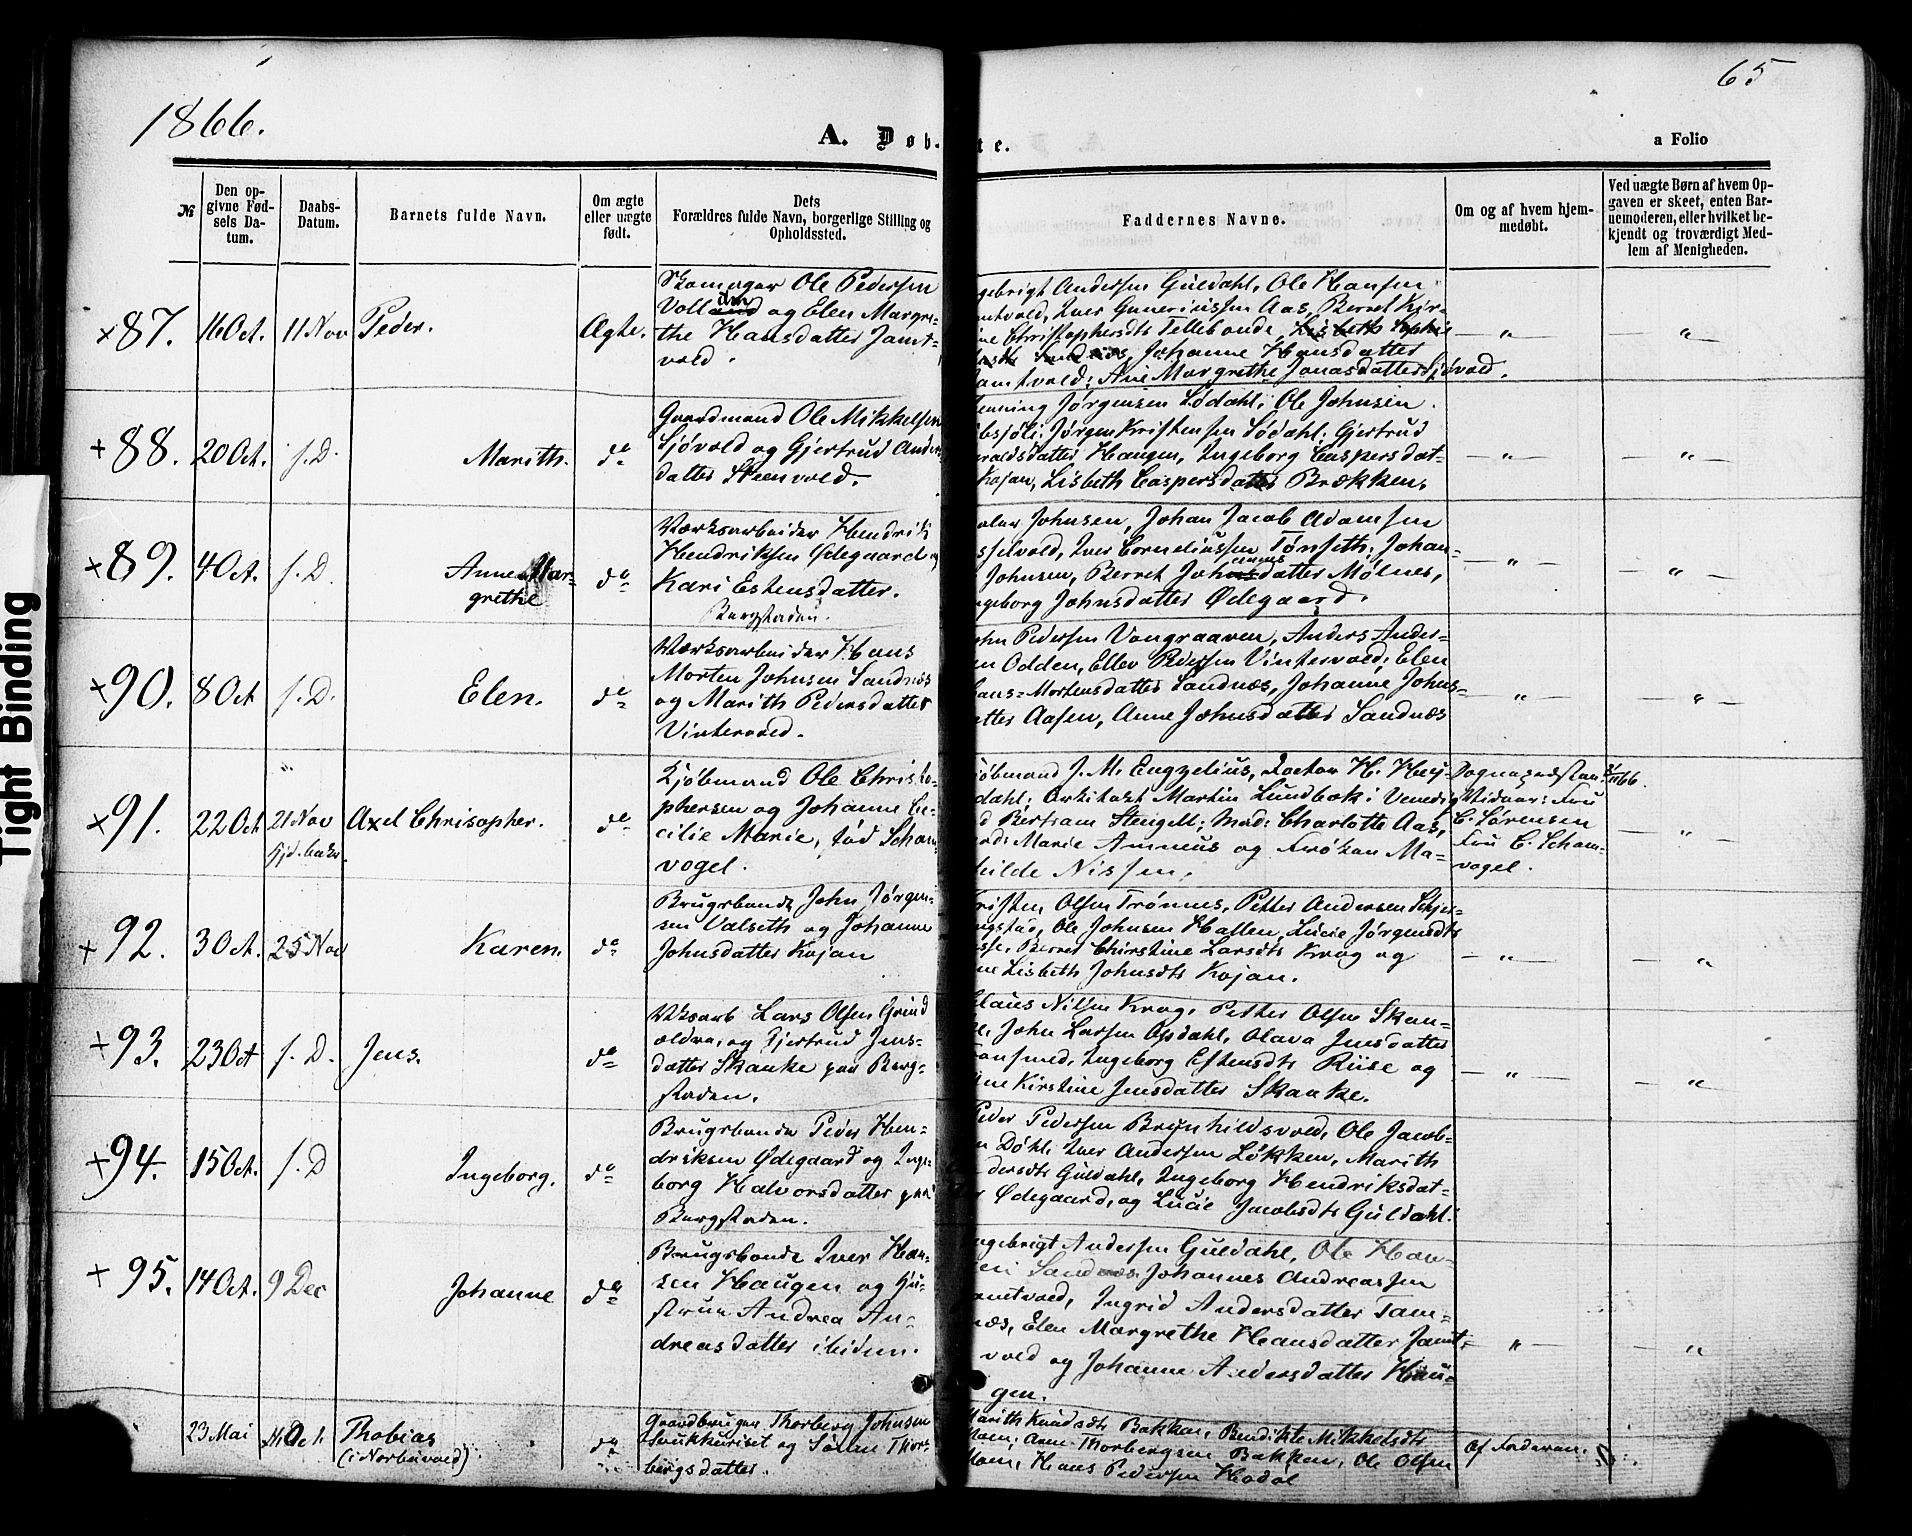 1866.
65
A. Døb-
te.
a Folio
№
Den op-
givne Fød-
sels Da-
tum.
Daabs-
Datum.
Barnets fulde Navn.
Om ægte
eller uægte
født.
Dets
Forældres fulde Navn, borgerlige Stilling og
Opholdssted.
Faddernes Navne.
Om og af hvem hjem-
medøbt.
Ved uægte Børn af hvem Op-
gaven er skeet, enten Bar-
nemoderen, eller hvilket be-
kjendt og troværdigt Med-
lem af Menigheden.
Tight Binding
×87. 16 Oct. 11 Nov Peder. Ægte.
Skomager Ole Pedersen
og Elen Margre-
the Hansdatter Jamt-
vold.
gebrigt Andersen Guldahl, Ole Hansen
mtvold, Iver Guneriussen Aas, Berret Kir-
ine Christophersdt Tellebonde, Lisbeth Sophie
Johanne Hansdatter
amtvold; Ane Margrethe Jonasdatter Sjøvold.
— „ — — „ —
+88. 20 Oct. s. D. Marith. do
Gaardmand Ole Mikkelsen
Sjøvold og Gjertrud Anders
datter Steenvold.
enning Jørgensen Sødahl; Ole Johnsen
Jørgen Kristensen Sødahl; Gjertrud
araldsdatter Haugen, Ingeborg Caspersdat-
Kojan, Lisbeth Caspersdatter Brækken.
— „ — — „ —
×89. 4 Oct. s. D. Anne Mar-
grethe do
Værksarbeider Hendrik
Hendriksen Ødegaard og
Kari Estensdatter.
Bergstaden.
Johnsen, Johan Jacob Adamsen
Iver Corneliussen Tønseth; Johan-
Johnsen, Berret datter Mølnes,
ngeborg Johnsdatter Ødegaard.
— „ — — „ —
×90. 8 Oct s. D. Elen. do
Værksarbeider Hans
Morten Johnsen Sandnæs
og Marith Pedersdatter
Vintervold.
ohn Pedersen Vongraaven, Anders Ander-
en Odden, Ellev Pedersen Vintervold; Elen
Hans-Mortensdatter Sandnæs, Johanne Johns-
atter Aasen, Anne Johnsdatter Sandnæs
— „ — — „ —
×91. 22 Oct 21 Nov Axel Chrisopher. do
Kjøbmand Ole Christo-
phersen og Johanne Ce-
cilie Marie, fød Scham-
vogel.
jøbmand J. M. Engzelius, Doctor H. Hey-
dahl; Arkitekt Martin Lundbæk i Venedig
Bertram Stengell; Mad: Charlotte Aas,
Marie Amneus og Frøken Ma-
hilde Nissen.
Sognepræsten
Vidaar: Fru
C. Sørensen
Fru C. Scham-
vogel.
— „ —
+92. 30 Oct. 25 Nov Karen. do
Brugsbonde John Jørgen-
sen Valseth og Johanne
Johnsdatter Kojan
risten Olsen Trønnes, Petter Andersen Skjer-
ngstad, Ole Johnsen Hallen, Lucie Jørgensdt
Berret Chirstine Larsdt Krog og
ne Lisbeth Johnsdt Kojan.
— „ — — „ —
+93. 23 Oct s. D. Jens. do
Vksarb Lars Olsen Grind
og Gjertrud Jens-
datter Skanke paa Berg-
staden.
Claus Nilsen Krog, Petter Olsen Skan-
ke, John Larsen Opdahl, Olava Jensdatter
Ingeborg Estensdt Riise og
ne Kirstine Jensdatter Skanke.
— „ — — „ —
+94. 15 Oct. s. D Ingeborg. do
Brugsbonde Peder Hen-
driksen Ødegaard og Inge-
borg Halvorsdatter paa
Bergstaden.
Peder Pedersen Brynhildsvold, Ole Jacob-
n Døhl; Iver Andersen Løkken, Marith
dersdt Guldahl, Ingeborg Hendriksdat-
r Ødegaard, og Lucie Jacobsdt Guldahl.
+95. 14 Oct. 9 Dec Johanne do
Brugsbonde Iver Han-
sen Haugen og Hu-
strue Andrea An-
dreasdatter ibidem.
ngebrigt Andersen Guldahl, Ole Han-
sen Sandnæs, Johannes Andreassen
amtvold, Ingrid Andersdatter Tam-
næs, Elen Margrethe Hansdatter Jamt-
vold og Johanne Andersdatter Hau-
gen.
— „ — — „ —
23 Mai Oct. Thobias
(i Norbuvold) do
Gaardbruger Thorberg Johnsen
og Thor-
bergsdatter.
Marith Knudsdt Bakken, Bendikte Mikkelsdt
Moen; Arne Thorbergsen Bakken, Ole Olsen
Moen, Hans Pedersen
Af Faderen.